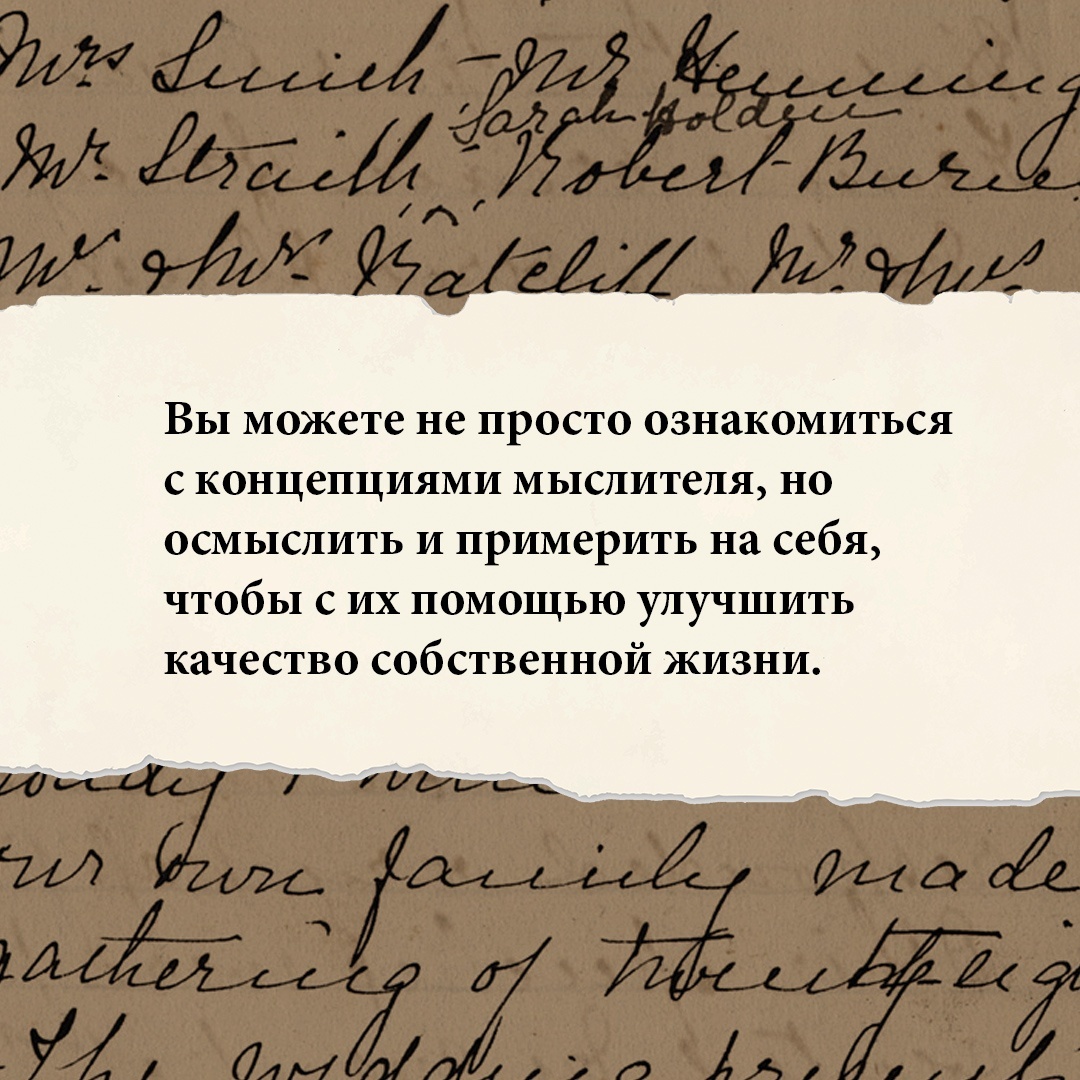 Mrs Smith - Mr Hemming
Sarah Holden
Mr. Straith - Robert Burie
Mr. & Mrs. Ratcliff Mr & Mrs
Вы можете не просто ознакомиться
с концепциями мыслителя, но
осмыслить и примерить на себя,
чтобы с их помощью улучшить
качество собственной жизни.
our own family made
gathering of
The wedding present